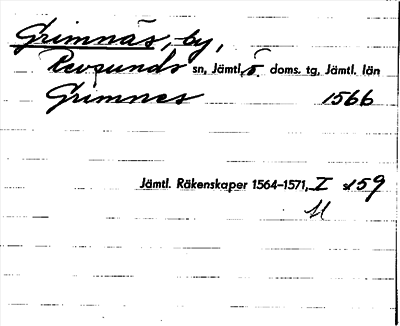 Grimnäs, by,
Revsunds sn, Jämtl. ö. doms. tg, Jämtl. län
Grimnes 1566
Jämtl. Räkenskaper 1564–1571, I s 159